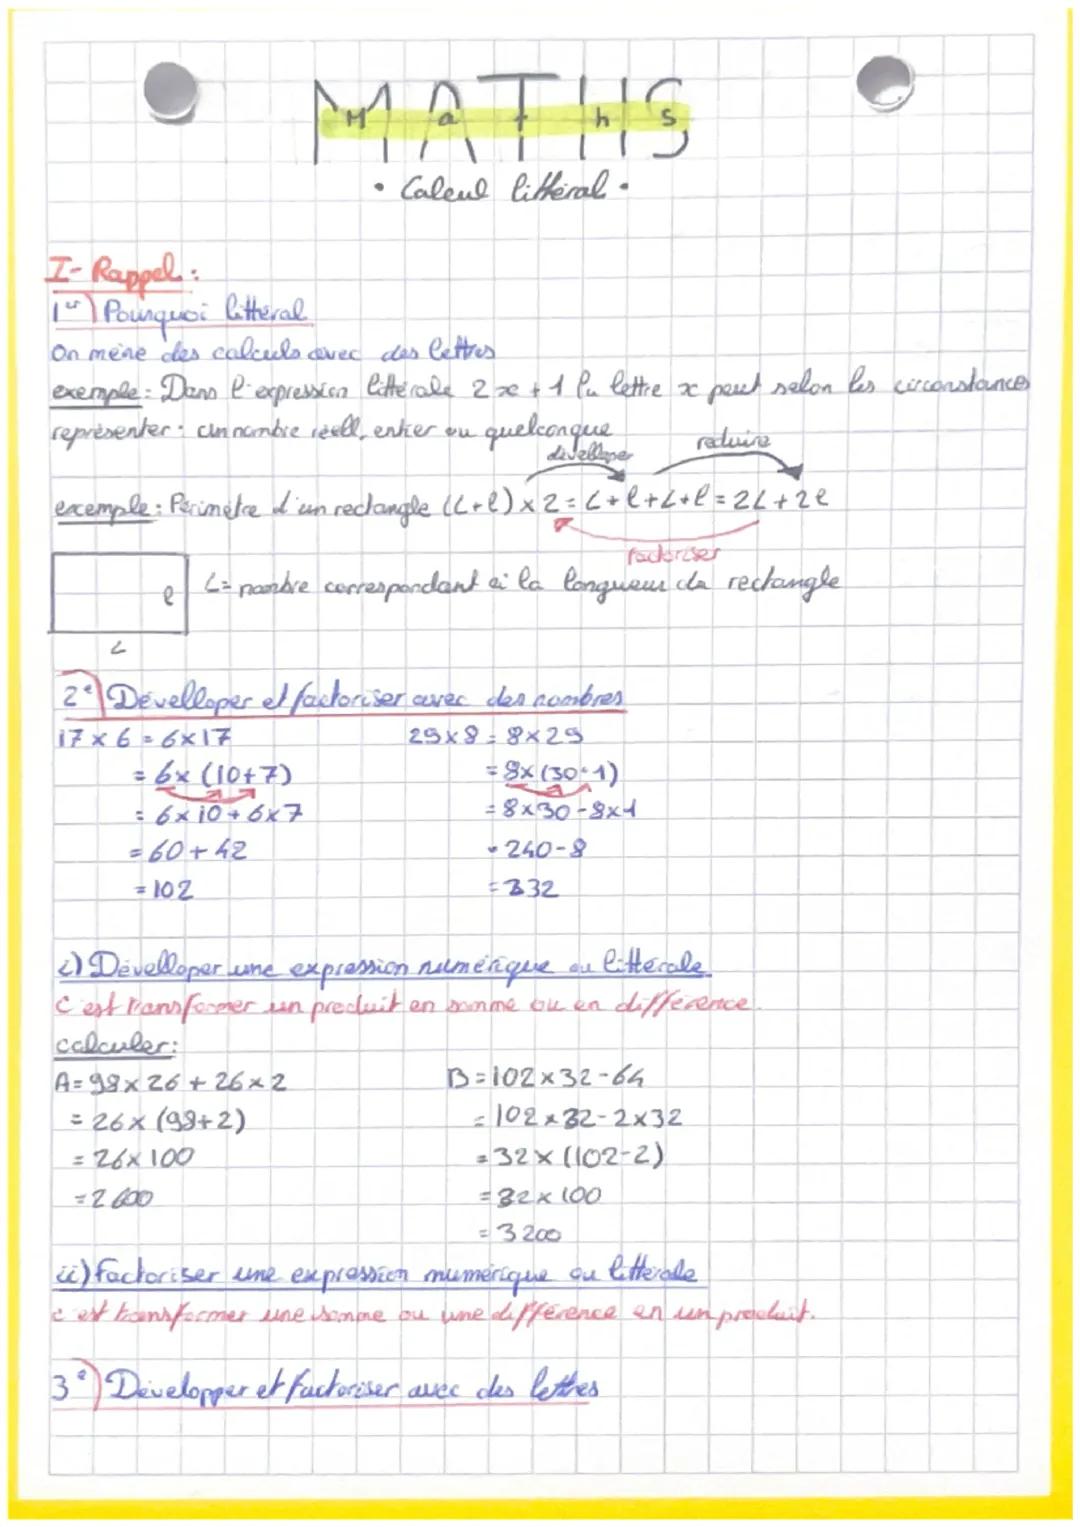 MATHS
M a t h s
• Calcul littéral •
I- Rappel :
1er) Pourquoi littéral
On mène des calculs avec des lettres
exemple : Dans l'expression littérale 2x + 1 la lettre x peut selon les circonstances
représenter : un nombre réell, entier ou quelconque
développer reduire
exemple : Périmètre d'un rectangle (L+l) × 2 = L + l + L + l = 2L + 2l
factoriser
l L = nombre correspondant à la longueur du rectangle
L
2e) Dévelloper et factoriser avec des nombres
17 × 6 = 6 × 17 29 × 8 = 8 × 29
= 6 × (10+7) = 8 × (30-1)
= 6 × 10 + 6 × 7 = 8 × 30 - 8 × 1
= 60 + 42 = 240 - 8
= 102 = 332
i) Dévelloper une expression numérique ou littérale
C'est transformer un produit en somme ou en différence.
calculer :
A = 98 × 26 + 26 × 2 B = 102 × 32 - 64
= 26 × (98+2) = 102 × 32 - 2 × 32
= 26 × 100 = 32 × (102-2)
= 2600 = 32 × 100
= 3200
ii) factoriser une expression numérique ou littérale
c'est transformer une somme ou une différence en un produit.
3e) Développer et factoriser avec des lettres